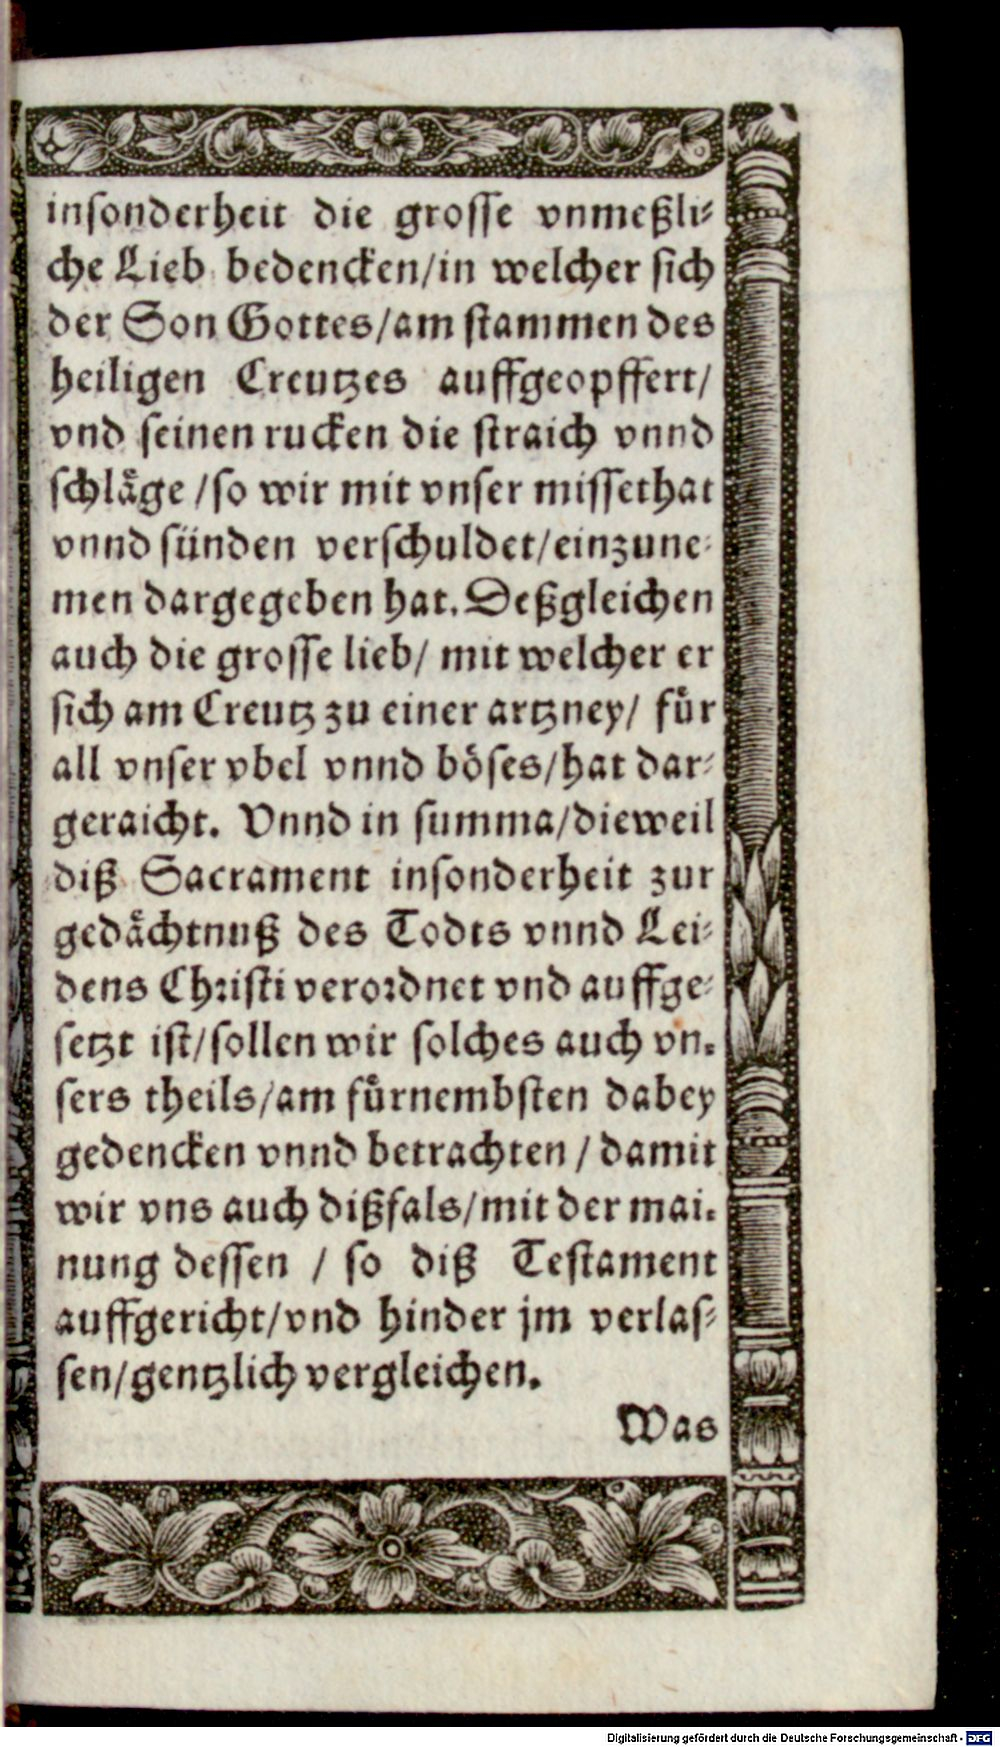 insonderheit die grosse vnmeßli-
che Lieb bedencken/in welcher sich
der Son Gottes/am stammen des
heiligen Creutzes auffgeopffert/
vnd seinen rucken die straich vnnd
schlåge /so wir mit vnser missethat
vnnd sünden verschuldet/einzune-
men dargegeben hat. Deßgleichen
auch die grosse lieb/ mit welcher er
sich am Creutz zu einer artzney/ fůr
all vnser vbel vnnd böses/hat dar-
geraicht. Vnnd in summa/dieweil
diß Sacrament insonderheit zur
gedåchtnuß des Todts vnnd Lei-
dens Christi verordnet vnd auffge-
setzt ist/sollen wir solches auch vn-
sers theils/am fůrnembsten dabey
gedencken vnnd betrachten / damit
wir vns auch dißfals/mit der mai-
nung dessen / so diß Testament
auffgericht/vnd hinder jm verlas-
sen/gentzlich vergleichen.
Was
Digitalisierung gefördert durch die Deutsche Forschungsgemeinschaft - DFG